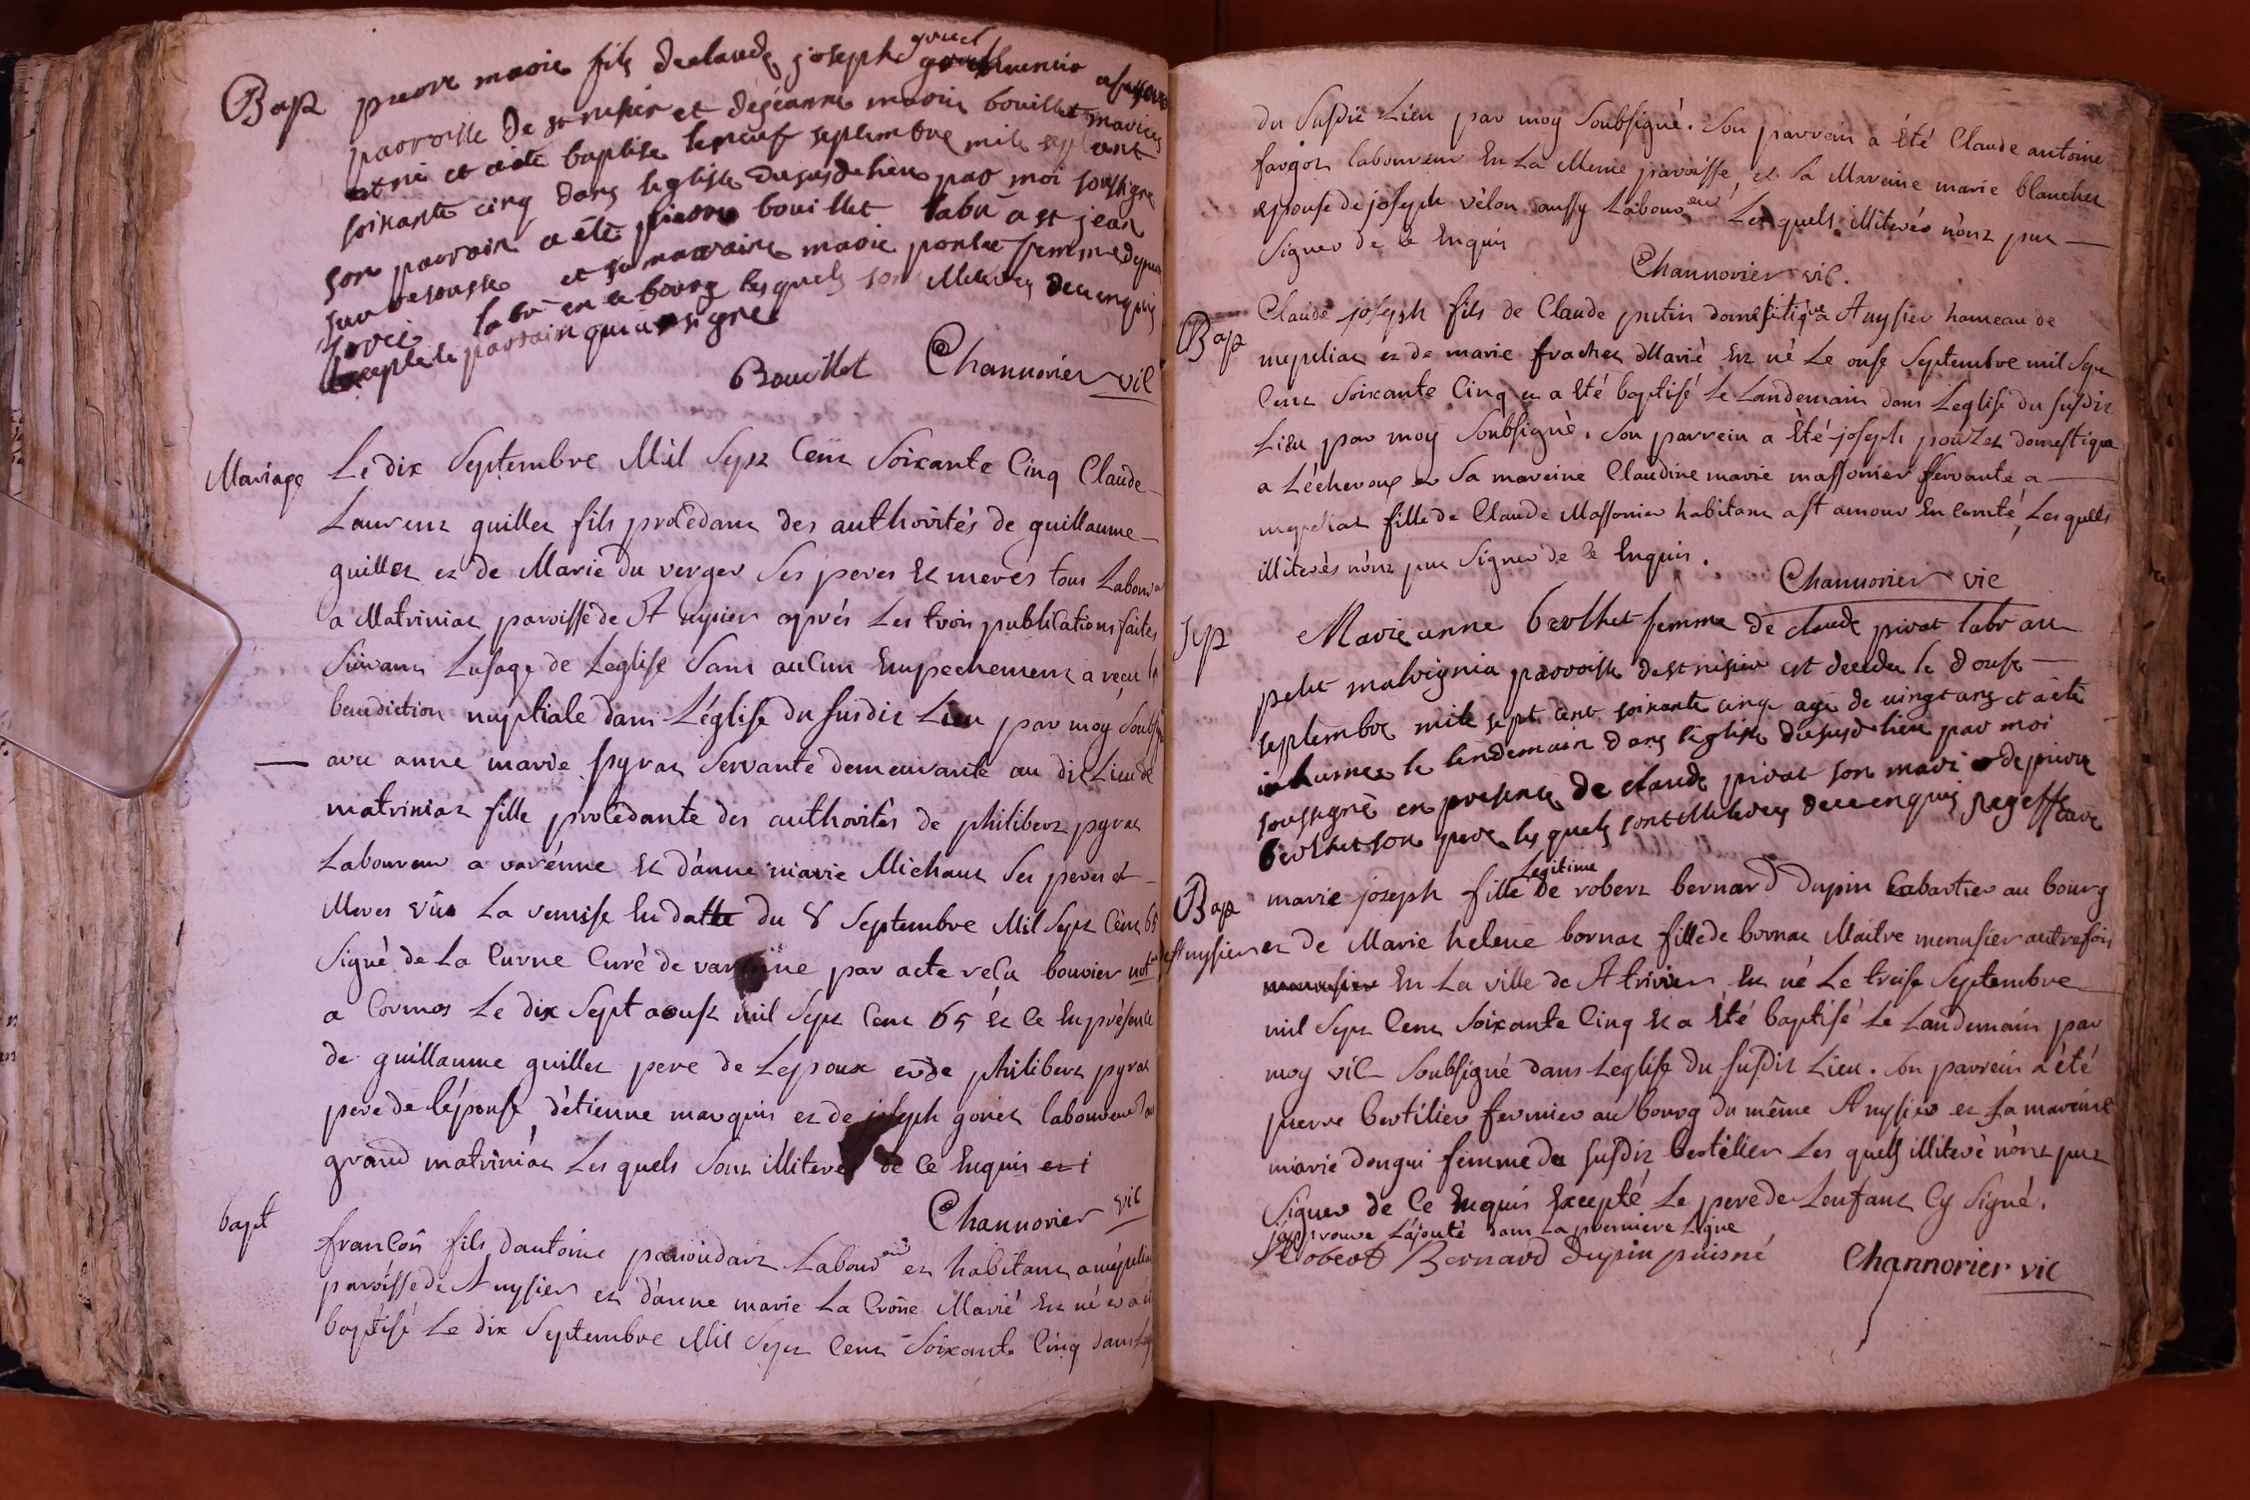 Bapt pierre marie fils de claude joseph gouet
paroisse de st nisier et de jeanne marie bouillet mariés
est né et a eté baptisé le neuf septembre mile sept cent
soixante cinq dans leglise du susd lieu par moi soussigné
son parrain a été pierre bouillet labr a st jean
sur resousse et sa marraine marie femme de pierre
labr en ce bourg lesquels son illiterés de ce enquis
excepté le parrain qui a signé
Bouillet Channorier vic
Mariage Le dix Septembre Mil Sept Cent Soixante Cinq Claude
Laurent guillet fils procédant des authorités de guillaume
guillet et de Marie du verger Ses peres Et meres tous Labours
a Matriniat paroisse de St nysier après Les trois publications faites
Suivant Lusage de Leglise Sans aucun Empechement a reçu la
benediction nuptiale dans L'église du susdit Lieu par moy Soubsig
avec anne marie pyrat Servante demeurante au dit Lieu de
matriniat fille procédante des authorités de philibert pyrat
Laboureur a varénne Et d'anne marie Michaut Ses peres et
Meres vûs La remise En datte du 8 Septembre Mil Sept Cent 65
Signé de La Curne Curé de varenne par acte reçu bouvier not
a Cormos Le dix Sept aoust mil Sept Cent 65 Et Ce En présence
de guillaume guillet pere de Lepoux et de philibert pyrat
pere de lépouse, d'étienne marquis et de joseph goriet laboureur au
grand matriniat Les quels Sont illiterés de Ce Enquis et i
Channorier vic
bapt françois fils dantoine Labour et habitant a mépilliat
paroisse de St nysier et d'anne marie La Crone Marié Est né et a été
baptisé Le dix Septembre Mil Sept Cent Soixante Cinq dans Leg
du susdit Lieu par moy Soubsigné. Son parrain a été Claude antoine
fargot laboureur En La Meme paroisse, et Sa Mareine marie blanchet
epouse de joseph vélon aussy Laboureur Les quels illiterés nont pue
Signer de ce Enquis
Channorier vic.
Bap Claude joseph fils de Claude putin domestique a St nysier hameau de
mepiliat et de marie frachet Marié Est né Le onse Septembre mil Sept
Cent Soixante Cinq et a été baptisé Le Landemain dans Leglise du susdit
Lieu par moy Soubsigné. Son parrein a été joseph pouzet domestique
a Lécheroux et Sa mareine Claudine marie massonier servante a
mepiliat fille de Claude Massonier habitant a St amour En Comté, Les quells
illiterés n'ont pue Signer de ce Enquis.
Channorier vic
Sep Marie anne berthet femme de claude pivat labr au
petit malrignia parroisse de st nisier est decedee le douse
septembre mile sept cent soixante cinq agé de vingt ans et a eté
inhumee le lendemain dans leglise du susd lieu par moi
soussigné en presence de claude pivat son mari de pierre
berthet son pere les quels sont illiterés de ce enquis
Bap de St nysier marie joseph fille Légitime de robert bernard dupin Cabartier au bourg
et de Marie helene bornat fille de bornat Maitre menusier autrefois
menusier En La ville de St trivier Est né Le treise Septembre
mil Sept Cent Soixante Cinq Et a été baptisé Le Landemain par
moy vic Soubsigné dans Leglise du susdit Lieu. Son parrein a été
pierre bertilier fermier au bourg du même St nysier et Sa mareine
marie dongui femme du susdit bertilier Les quells illiteré n'ont pue
Signer de Ce Enquis Excepté Le pere de Lenfant Cy Signé.
j'approuve L'ajouté dans La premiere Ligne
Robert Bernard Dupin puisné Channorier vic